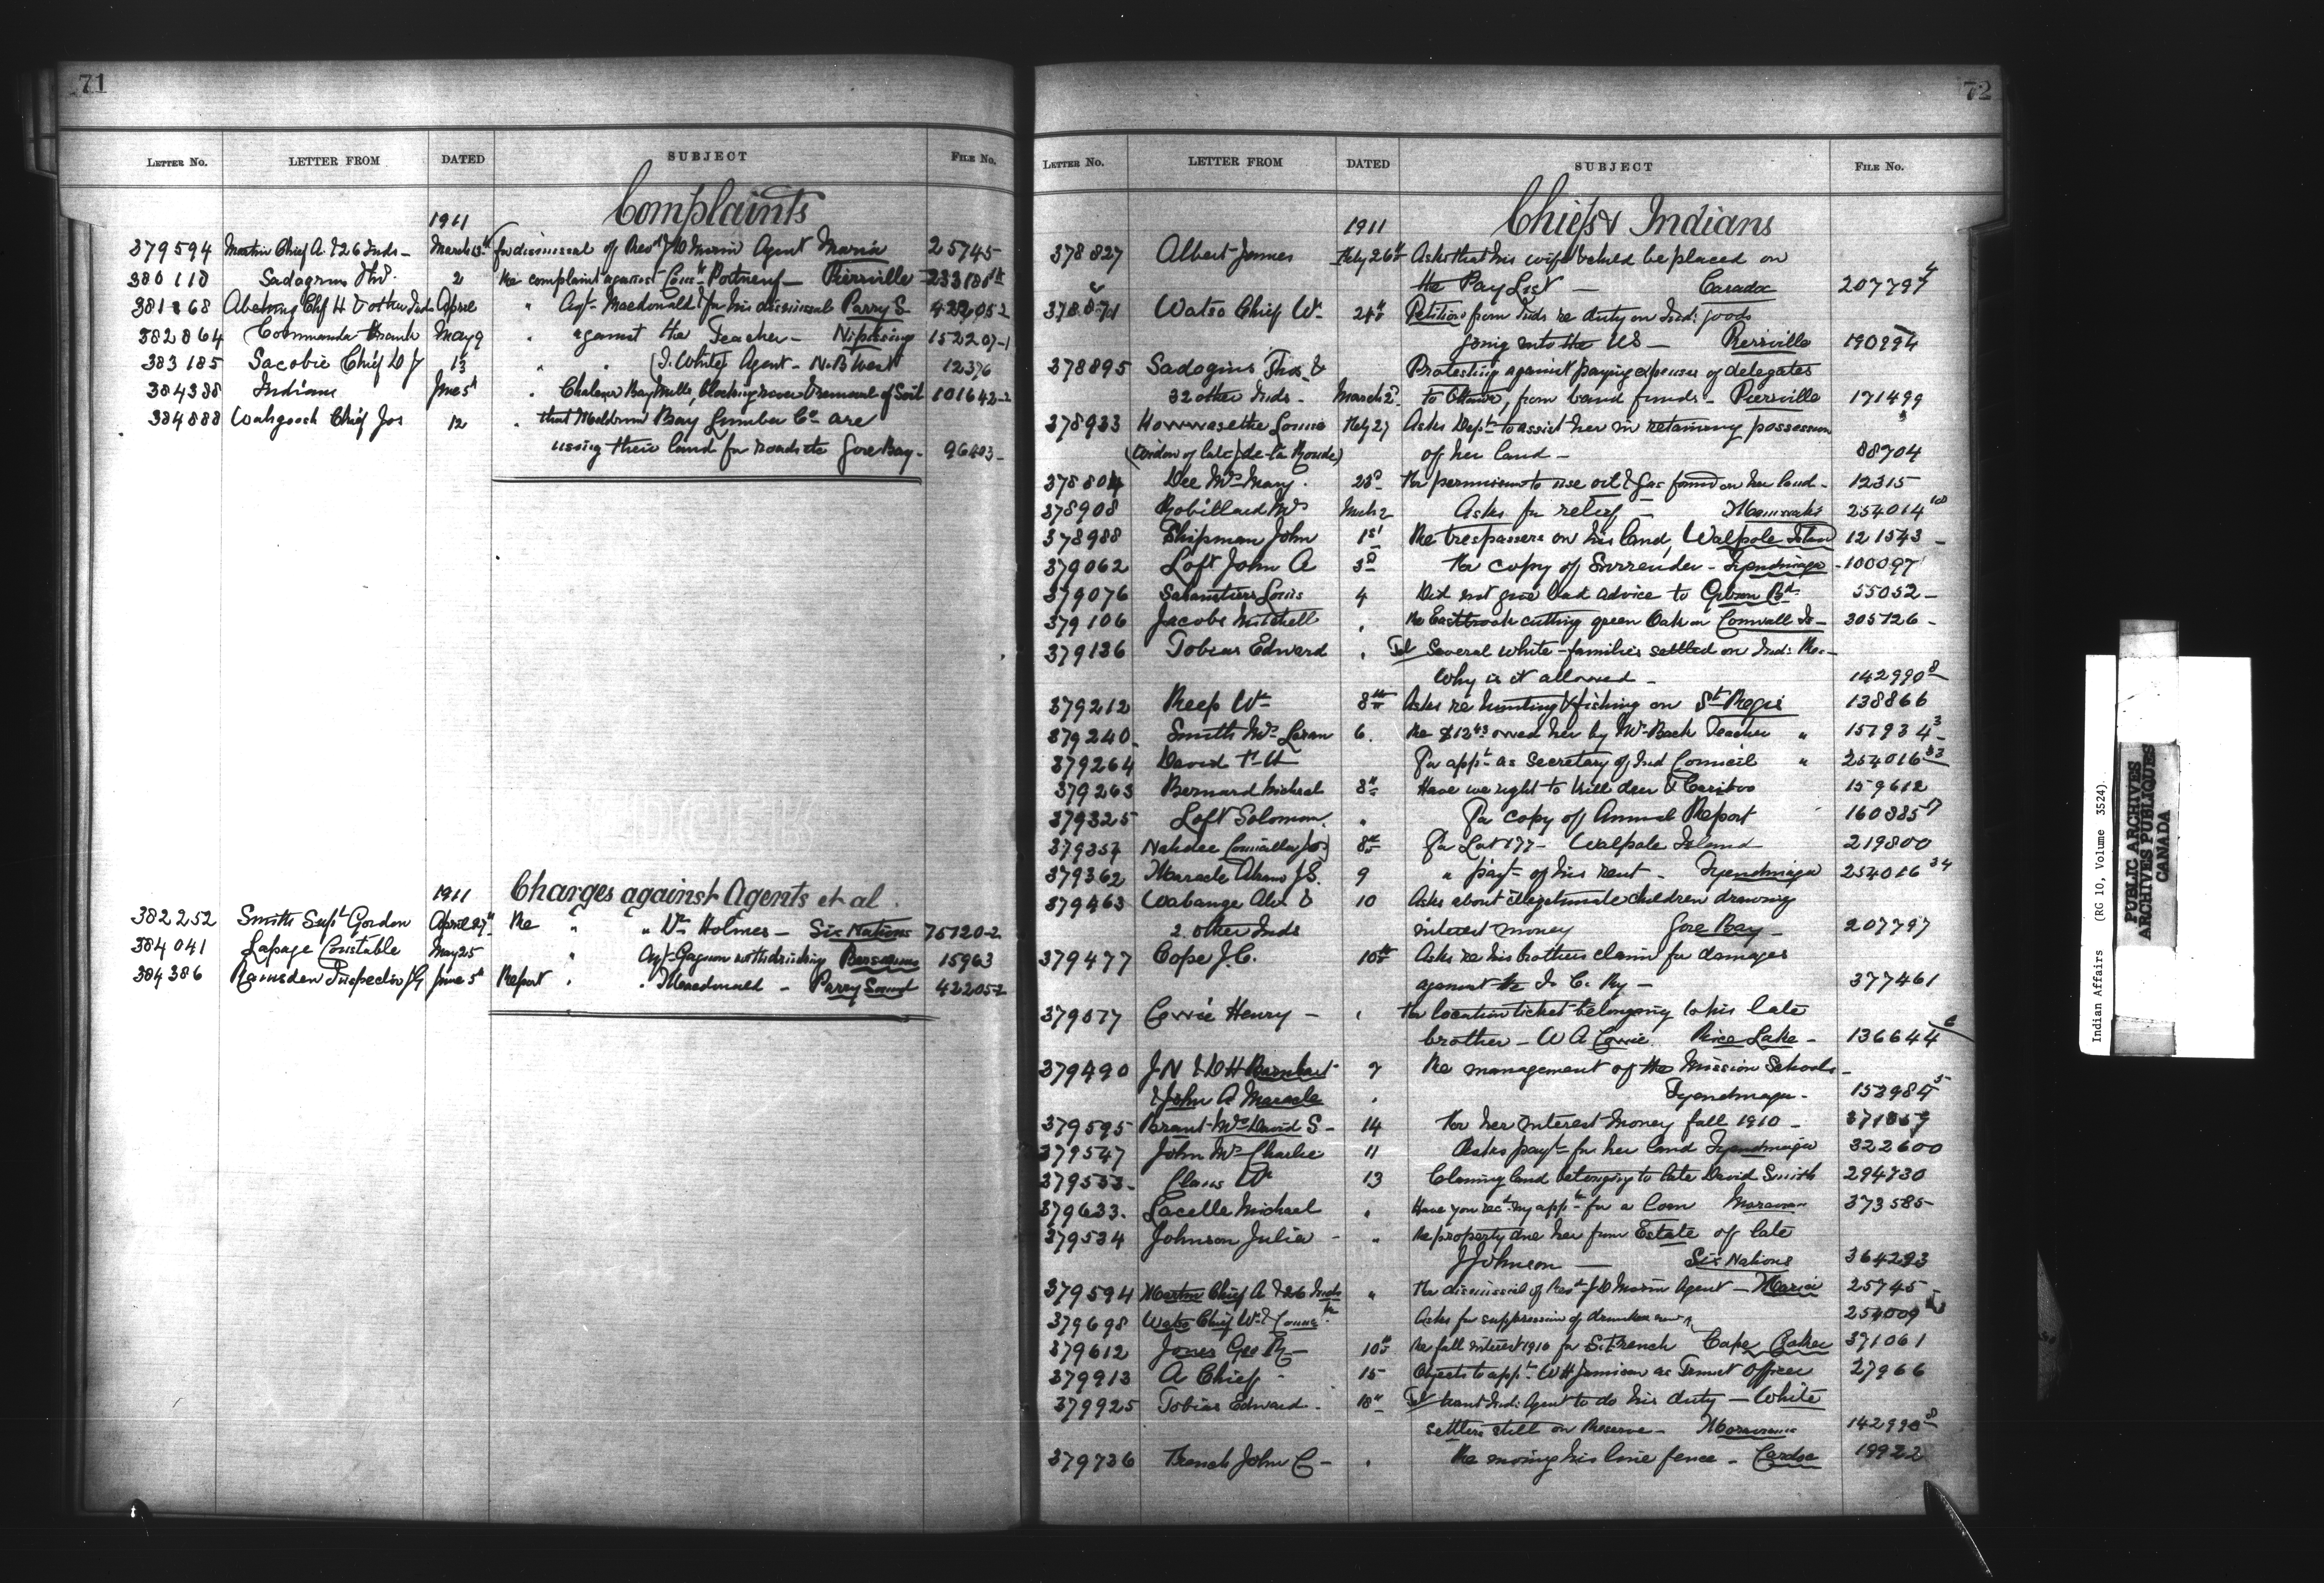 71
LETTER NO. LETTER FROM DATED SUBJECT FILE NO.
Complaints
1911
379594 Martin Chief A. & 26 Inds - March 13th for dismissal of Revd J D Morin Agent Maria 25745
380118 Sadagrus Tho. 2 Re complaint against Portneuf - Pierreville
381868 Chf H & other Inds April " Agt Macdonald & for his dismissal Parry S. 422052
382864 Commanda Frank May 9 " against the Teacher - Nipissing 152207-1
383185 Sacobie Chief D J 13 " " (J. White) Agent - N.B. West 12376
384338 Indians June 5th " Chaleur Bay Mills, blocking river & removal of Soil 101642-2
384888 Wahgoosh Chief Jos 12 " that Meldrum Bay Lumber Co are
using their land for roads etc Gore Bay - 96403 -
1911
Charges against Agents et al.
382252 Smith Supt Gordon April 27th Re " " Dr Holmes - Six Nations 75120-2
384041 Lapage Constable May 25 " Agt Gagnon drinking Bersimis 15963
384386 Ramsden Inspector J G June 5th Report " " Macdonald - Parry Sound 422052
72
LETTER NO. LETTER FROM DATED SUBJECT FILE NO.
Chiefs & Indians
1911
378827 Albert James Feby 26th Asks that his wife should be placed on
the Pay List - Caradoc 207797 4
Watso Chief Wm 24th Petition from Inds re duty on Ind: goods
going into the US - Pierreville
378895 Sadogius Thos. & Protesting against paying expenses of delegates
32 other Inds - March 2d. to Ottawa, from band funds - Pierreville 171499
378933 Louise Feby 27 Asks Dept to assist her in retaining possession
(widow of late J de la Ronde) of her land - 88704
378804 Dee Mrs Mary. 28th For permission to use oil & gas found on her land - 12315
378908 Robillard Mrs Mch 2 Asks for relief - 254014
378988 Shipman John 1st Re trespassers on his land, Walpole Island 121543 -
379062 Loft John A 3d For copy of Surrender - Tyendinaga - 100097
379076 Louis 4 Did not give bad advice to Gibson Bd. 55052 -
379106 Jacobs Mitchell " Re Eastbrook cutting green Oak on Cornwall Is - 305726 -
379136 Tobias Edward " Tel Several white families settled on Ind: Re. -
Why is it allowed - 142990 8
379212 Reep Wm 8th Asks re hunting & fishing on St Regis 138866
379240. Smith Mrs 6. Re $12 owed her by Mr Back Teacher " 157934 3
379264 David For appt as Secretary of Ind Council " 254016 33
379263 Bernard Michael 8th Have we right to kill deer & Caribou 159612
379325 Loft Solomon. " For copy of Annual Report 160385
379357 Nahdee Councillor Jos 8th For Lot 177 - Walpole Island 219800
379362 Maracle Abram J.S. 9 " payt of his rent - Tyendinaga 254016 34
379463 Wabange Alex & 10 Asks about illegitimate children drawing
2 other Inds interest money Gore Bay - 207797
379477 Cope J.C. 10th Asks re his brothers claim for damages
against the I. C. Ry - 377461
379577 Cowie Henry - " For location ticket belonging to his late
brother - W A Cowie. Rice Lake - 136644 6
379490 J N & D H Barnhart 9 Re management of the Mission Schools -
& John A Maracle " Tyendinaga - 153984 5
379595 Brant Mrs David S - 14 For her interest money fall 1910 -
379547 John Mrs Charlie 11 Asks payt for her land Tyendinaga 322600
379553 - Claus Wm 13 Claiming land belonging to late David Smith 294730
379633. Lacelle Michael " Have you recd my appn for a loan 373585
379534 Johnson Julia - " Re property due her from Estate of late
J Johnson - Six Nations 364293
379594 Martin Chief A & 26 Inds " For dismissal of Revd J D Morin Agent - Maria 25745
379698 Watso Chief Wm & Asks for suppression of 254009
379612 Jones Geo 10th Re fall interest 1910 for Cape Croker 371061
379913 A Chief - 15 Objects to appt W H Jamieson as Truant Officer 27966
379925 Tobias Edward. 18th Tel Want Ind: Agent to do his duty - White
settlers still on Reserve - Moravians 142990 8
379736 French John C - " Re moving his line fence - 19922
Indian Affairs (RG 10, Volume 3524)
PUBLIC ARCHIVES
ARCHIVES PUBLIQUES
CANADA